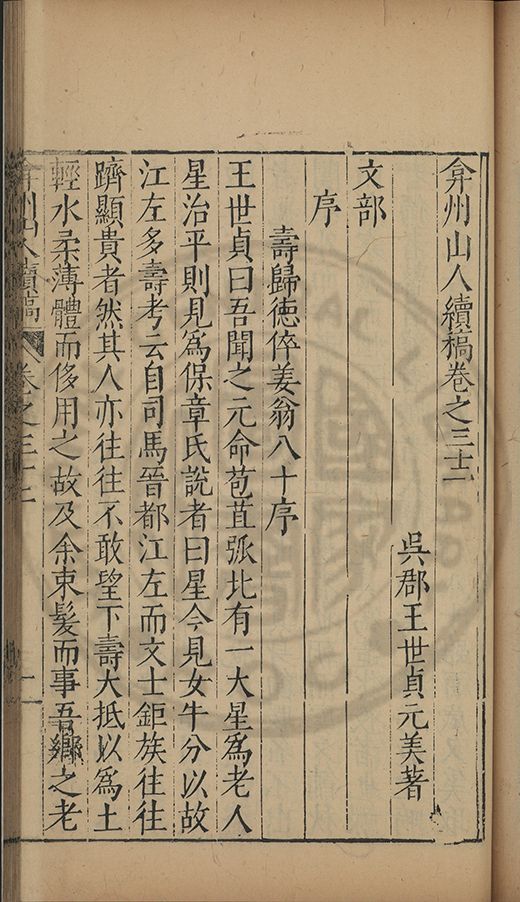 弇州山人續稿卷之三十一
吳郡王世貞元美著
文部
序
壽歸德倅姜翁八十序
王世貞曰吾聞之元命苞苴弧比有一大星為老人
星治平則見為保章氏說者曰星今見女牛分以故
江左多壽考云自司馬晉都江左而文士鉅族往往
躋顯貴者然其人亦往往不敢望下壽大抵以為土
輕水柔薄體而侈用之故及余束髮而事吾鄉之老
弇州山人續稿
卷之三十一
一